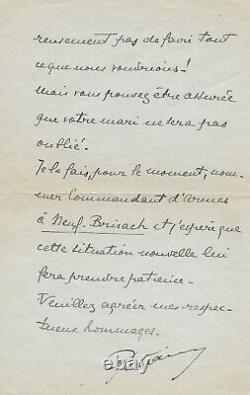 reusement pas de faire tout
ce que nous voudrions!
Mais vous pouvez être assurée
que votre mari ne sera pas
oublié.
Je le fais, pour le moment, nom-
mer Commandant d'armes
à Neuf-Brisach et j'espère que
cette situation nouvelle lui
fera prendre patience.
Veuillez agréer mes respec-
tueux hommages.